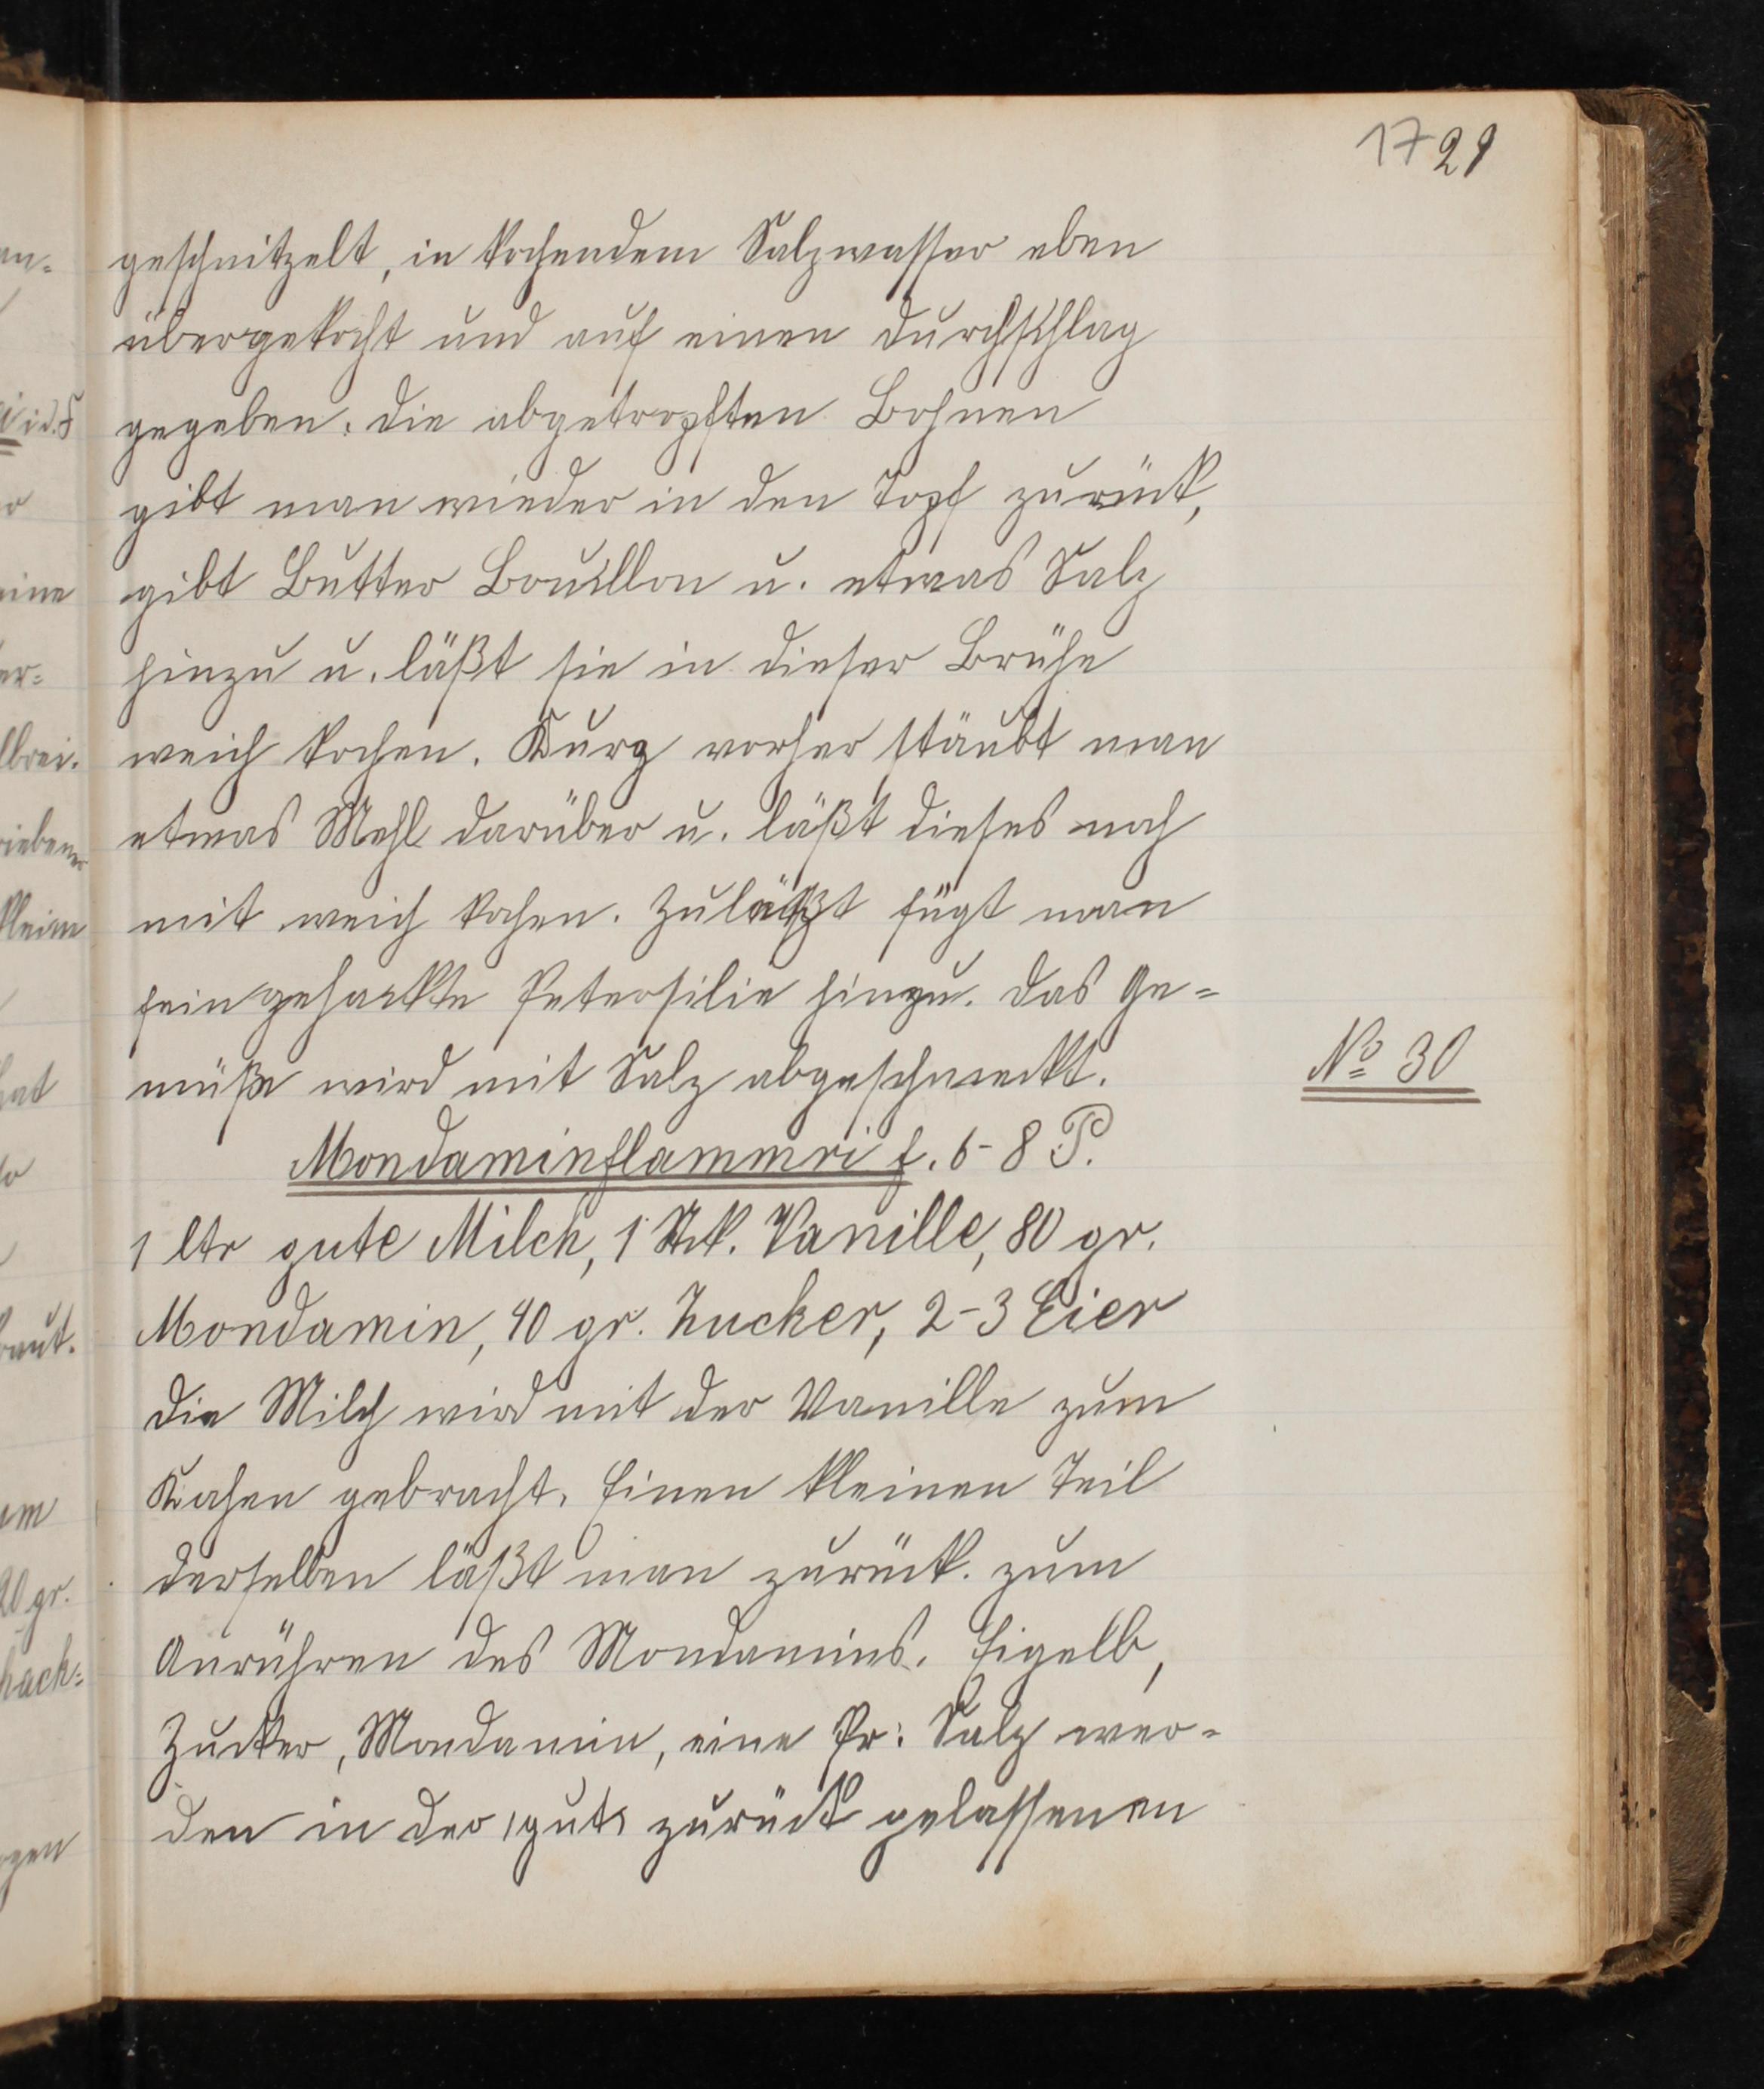 17 29
geschnitzelt, in kochendem Salzwasser eben
übergekocht und auf einen Durchschlag
gegeben. Die abgetropften Bohnen
gibt man wieder in den Topf zurück,
gibt Butter Bouillon u. etwas Salz
hinzu u. läßt sie in dieser Brühe
weich kochen. Kurz vorher stäubt man
etwas Mehl darüber u. läßt dieses noch
mit weich kochen. Zuläßt fügt man
fein gehackte Petersilie hinzu. Das Ge=
müße wird mit Salz abgeschmeckt.
No 30
Mondaminflammri f. 6-8 P.
1 ltr gute Milch, 1 Stk. Vanille, 80 gr.
Mondamin, 40 gr. Zucker, 2-3 Eier
Die Milch wird mit der Vanille zum
Kochen gebracht. Einen kleinen Teil
derselben läßt man zurück. zum
Anrühren des Mondamins. Eigelb,
Zucker, Mondamin, eine Pr: Salz wer=
den in der gut zurück gelassenen